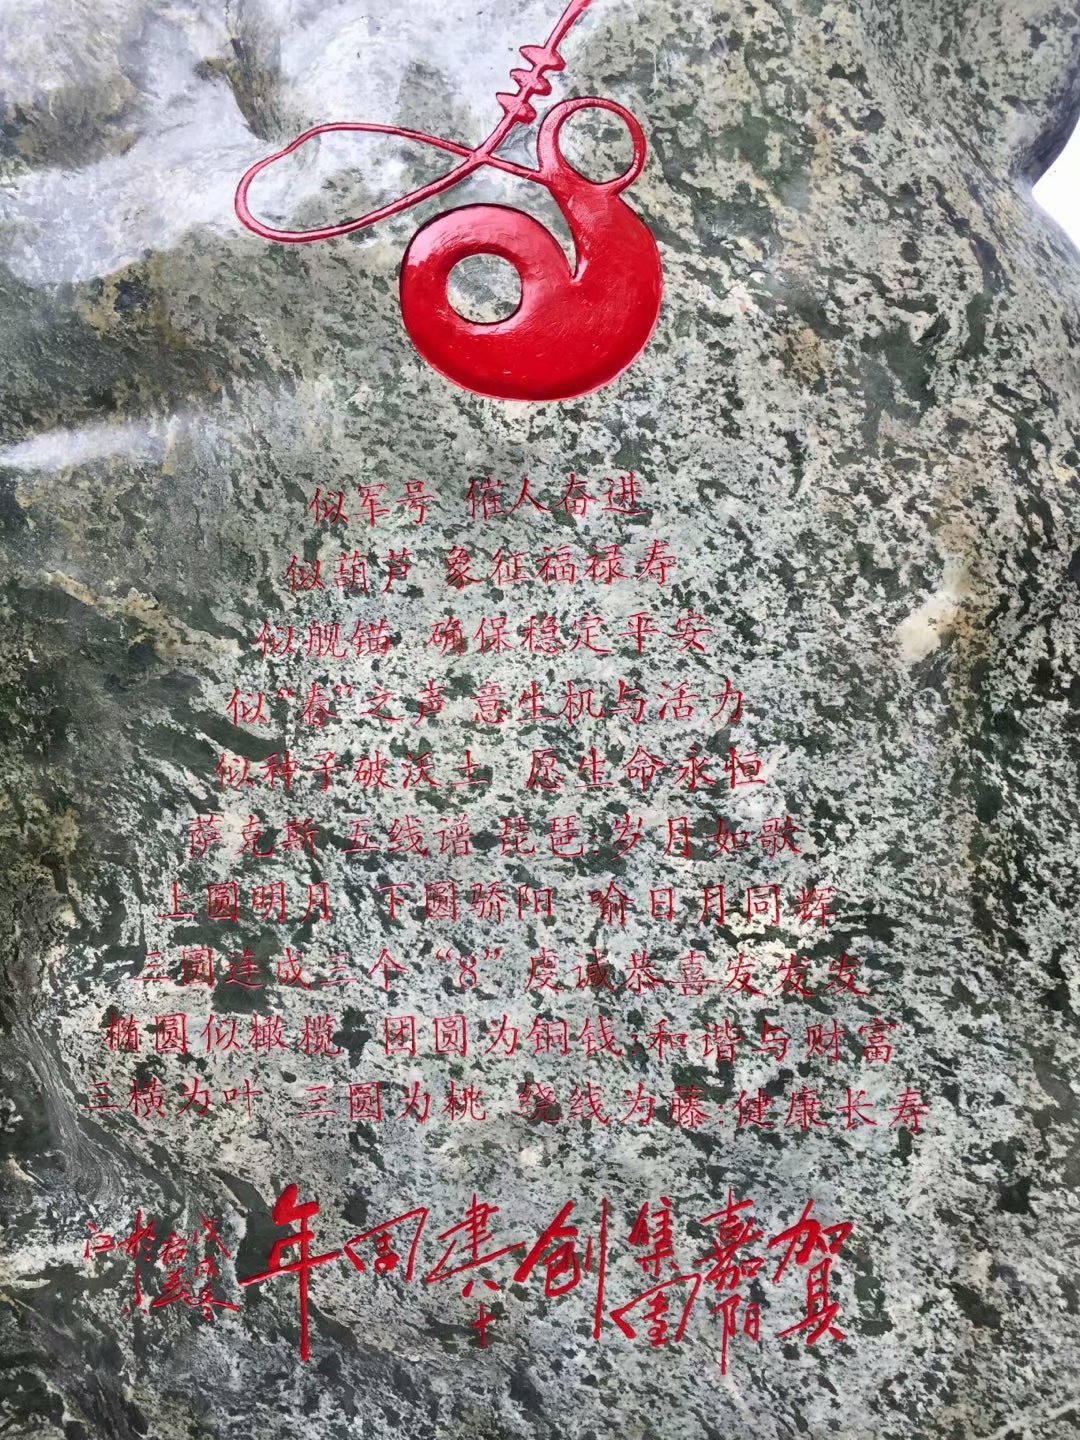 似军号 催人奋进
似葫芦 象征福禄寿
似舰锚 确保稳定平安
似“春”之声 意生机与活力
似种子破沃土 愿生命永恒
萨克斯 五线谱 琵琶:岁月如歌
上圆明月 下圆骄阳 喻日月同辉
三圆连成三个“8”虔诚恭喜发发发
椭圆似橄榄 团圆为铜钱:和谐与财富
三横为叶 三圆为桃 绕线为藤:健康长寿
贺嘉阳集团创建八十周年
戊戌冬